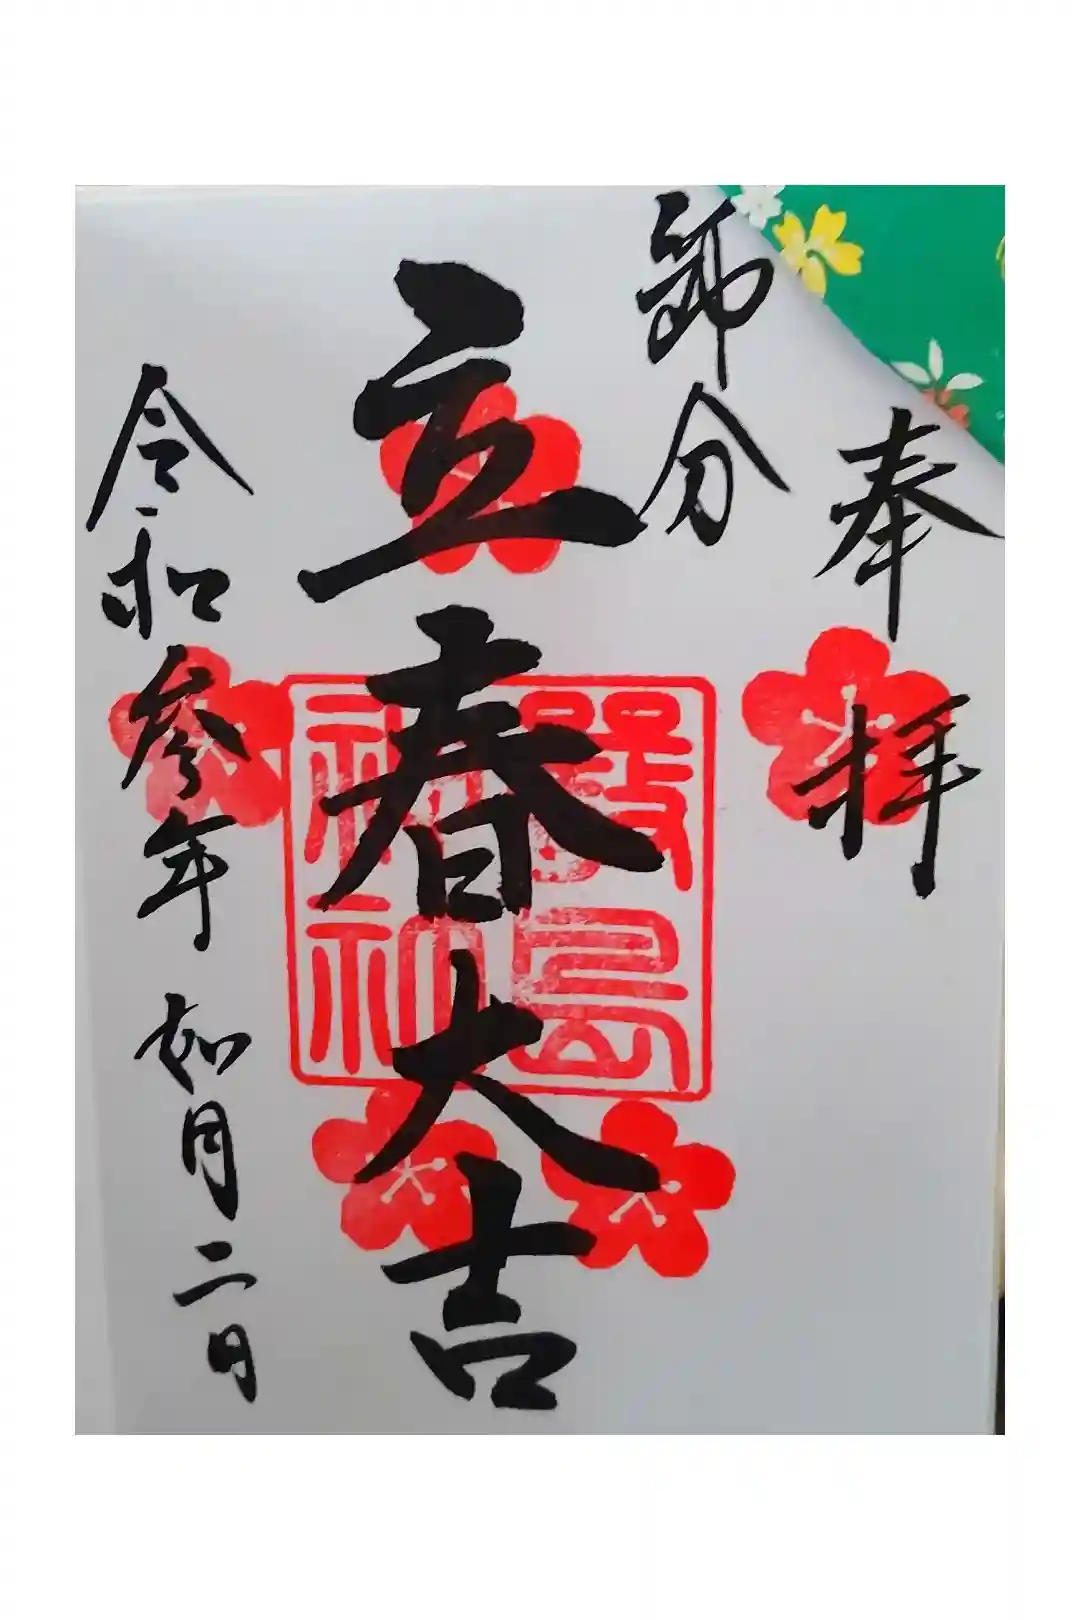 奉拝
節分
立春大吉
嚴島
神社
令和参年如月二日